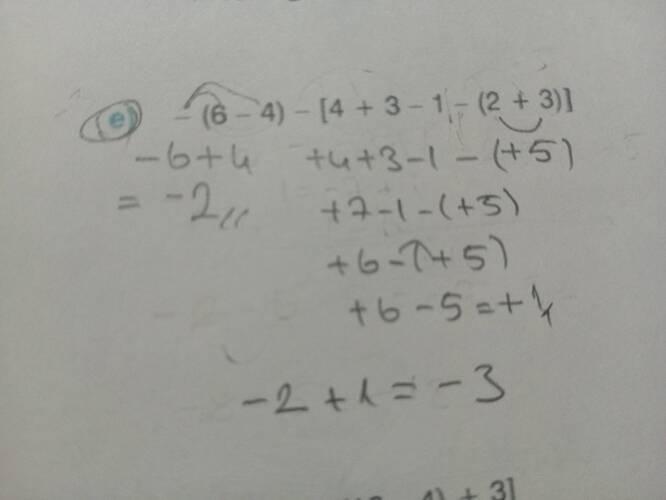 e) – (6 – 4) – [4 + 3 – 1 – (2 + 3)]
-6+4 +4+3-1-(+5)
= -2,, +7-1-(+5)
+6-(+5)
+6-5=+1
-2+1=-3
4) + 3]